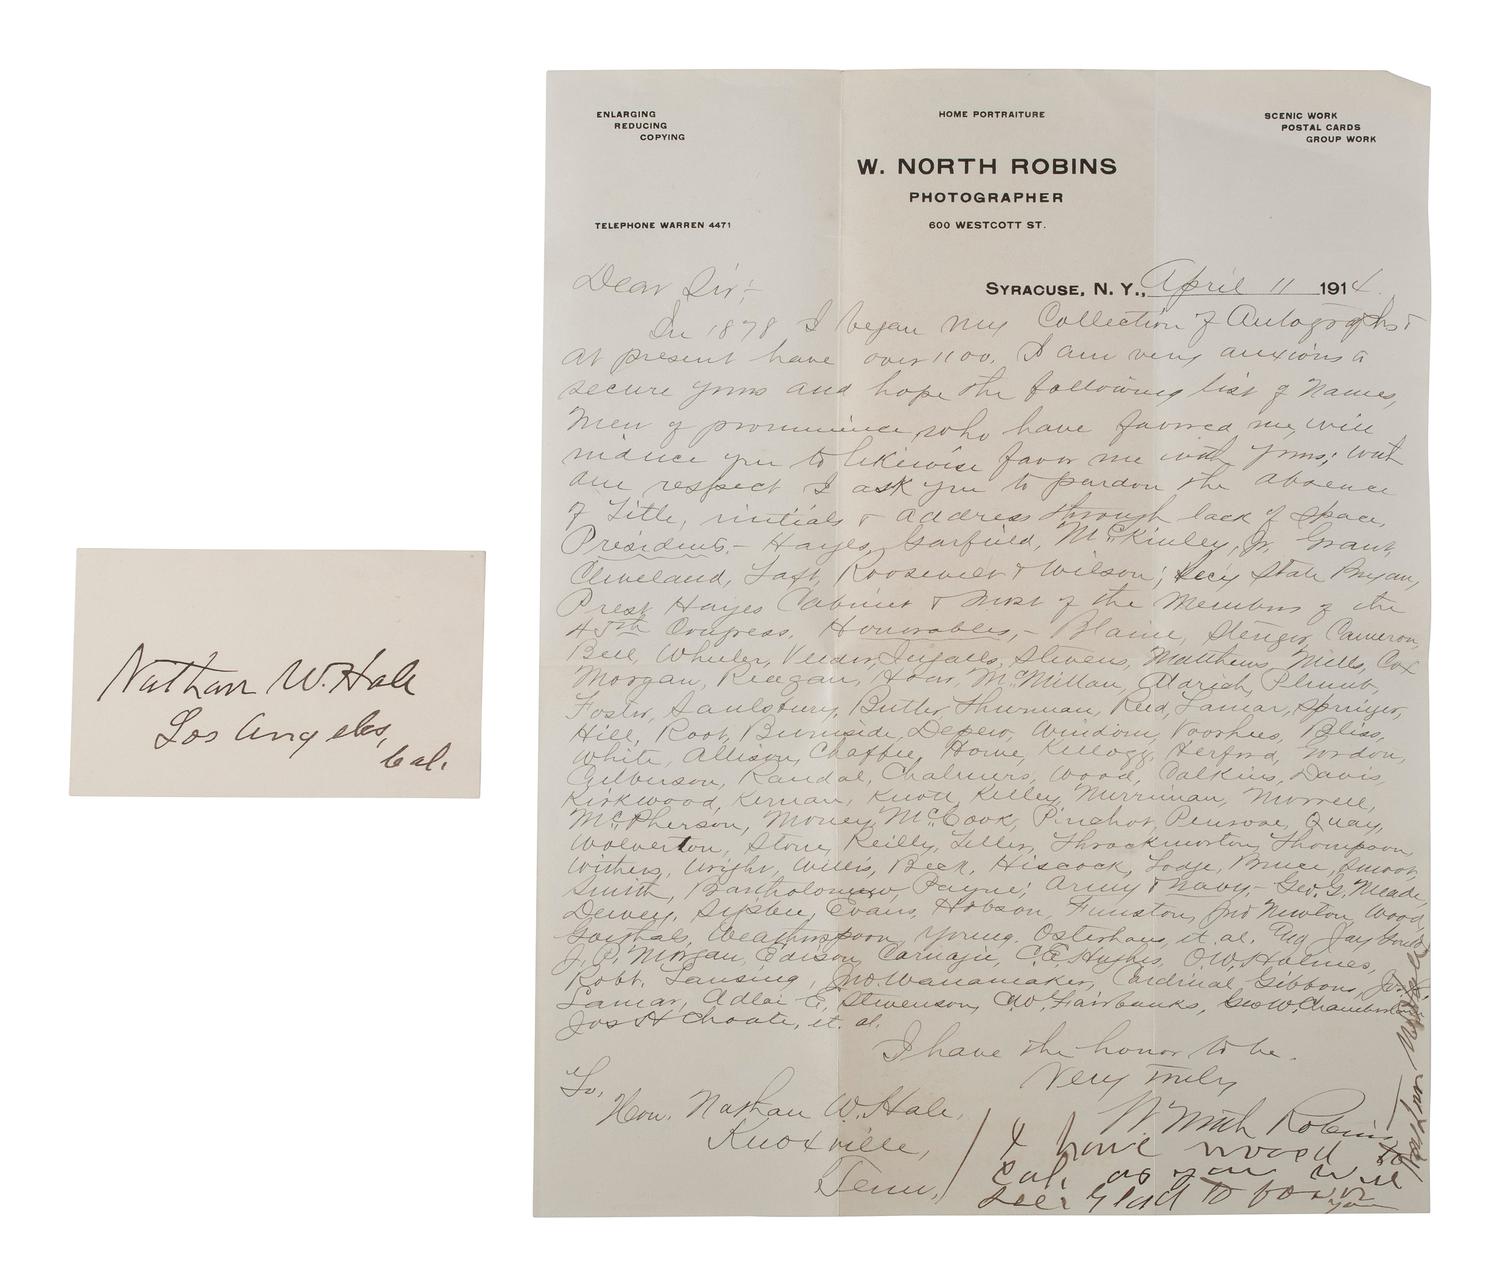 Nathan W. Hale
Los Angeles,
Cal.
ENLARGING
REDUCING
COPYING
HOME PORTRAITURE
SCENIC WORK
POSTAL CARDS
GROUP WORK
W. NORTH ROBINS
PHOTOGRAPHER
TELEPHONE WARREN 4471
600 WESTCOTT ST.
SYRACUSE, N. Y., April 11 1914.
Dear Sir:-
In 1878 I began my Collection of Autographs &
at present have over 1100. I am very anxious to
secure yours and hope the following list of Names,
Men of prominence, who have favored me, will
induce you to likewise favor me with yours; with
due respect I ask you to pardon the absence
of Title, initials & address through lack of space.
Presidents,- Hayes, Garfield, McKinley, Jr. Grant,
Cleveland, Taft, Roosevelt & Wilson; Secy State Bryan,
Prest. Hayes Cabinet & most of the Members of the
45th Congress. Honorables,- Blaine, Stenger, Cameron,
Bell, Wheeler, Ingalls, Stevens, Matthews, Mills, Cox
Morgan, Reagan, Hoar, McMillan, Aldrich, Plumb,
Foster, Saulsbury, Butler, Thurman, Reed, Lamar, Springer,
Hill, Root, Burnside, Depew, Windom, Voorhees, Bliss,
White, Allison, Chaffee, Howe, Kellogg, Herford, Gordon,
Randal, Chalmers, Wood, Calkins, Davis,
Kirkwood, Kernan, Knott, Kelley, Merriman, Morrell,
McPherson, Money, McCook, Pinchot, Penrose, Quay,
Wolverton, Stone, Reilly, Teller, Throckmorton, Thompson,
Withers, Wright, Willis, Beck, Hiscock, Lodge, Bruce, Smoot,
Smith, Bartholomew, Payne; Army & Navy,- Geo. G. Meade,
Dewey, Sigsbee, Evans, Hobson, Funston, Jno Newton, Wood,
Goethals, Weatherspoon, Young, Osterhaus, et. al. Jay Gould
J. P. Morgan, Edison, Carnagie, C. E. Hughes, O. W. Holmes,
Robt. Lansing, Jno. Wanamaker, Cardinal Gibbons, Jos. R.
Lamar, Adlai E. Stevenson, C. W. Fairbanks, Geo W. Chamberlain
Jos H Choate, et. al.
I have the honor to be.
Very Truly
W North Robins
To,
Hon. Nathan W. Hale,
Knoxville,
Tenn,
I have moved to
Cal. as you will
see. Glad to favor
you
Nathan W. Hale